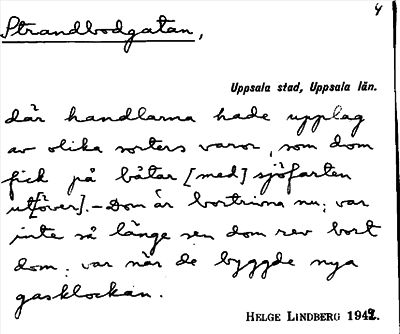 4
Strandbodgatan,
Uppsala stad, Uppsala län.
där handlarna hade upplag
av olika sorters varor, som dom
fick på båtar [med] sjöfarten
ut[över]. – Dom är bortrivna nu; var
inte så länge sen dom rev bort
dom; var när de byggde nya
gasklockan.
HELGE LINDBERG 1942.